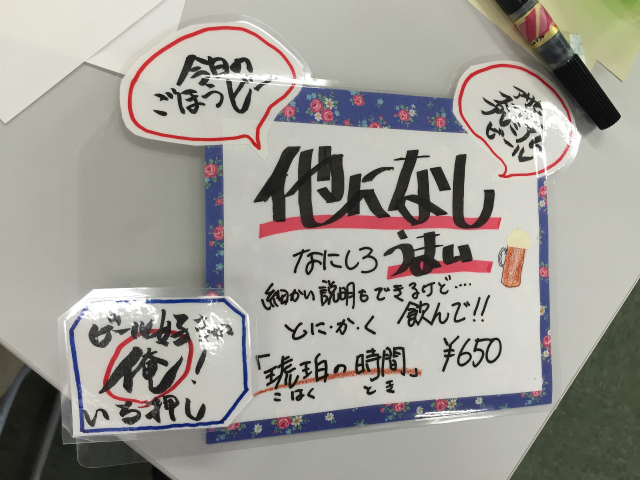 今日の
ごほうび
プレミアム
ビール
他になし
なにしろ うまい
細かい説明もできるけど....
とに・か・く 飲んで!!
「琥珀の時間」 ¥650
こはく とき
ビール好き
俺!
いち押し